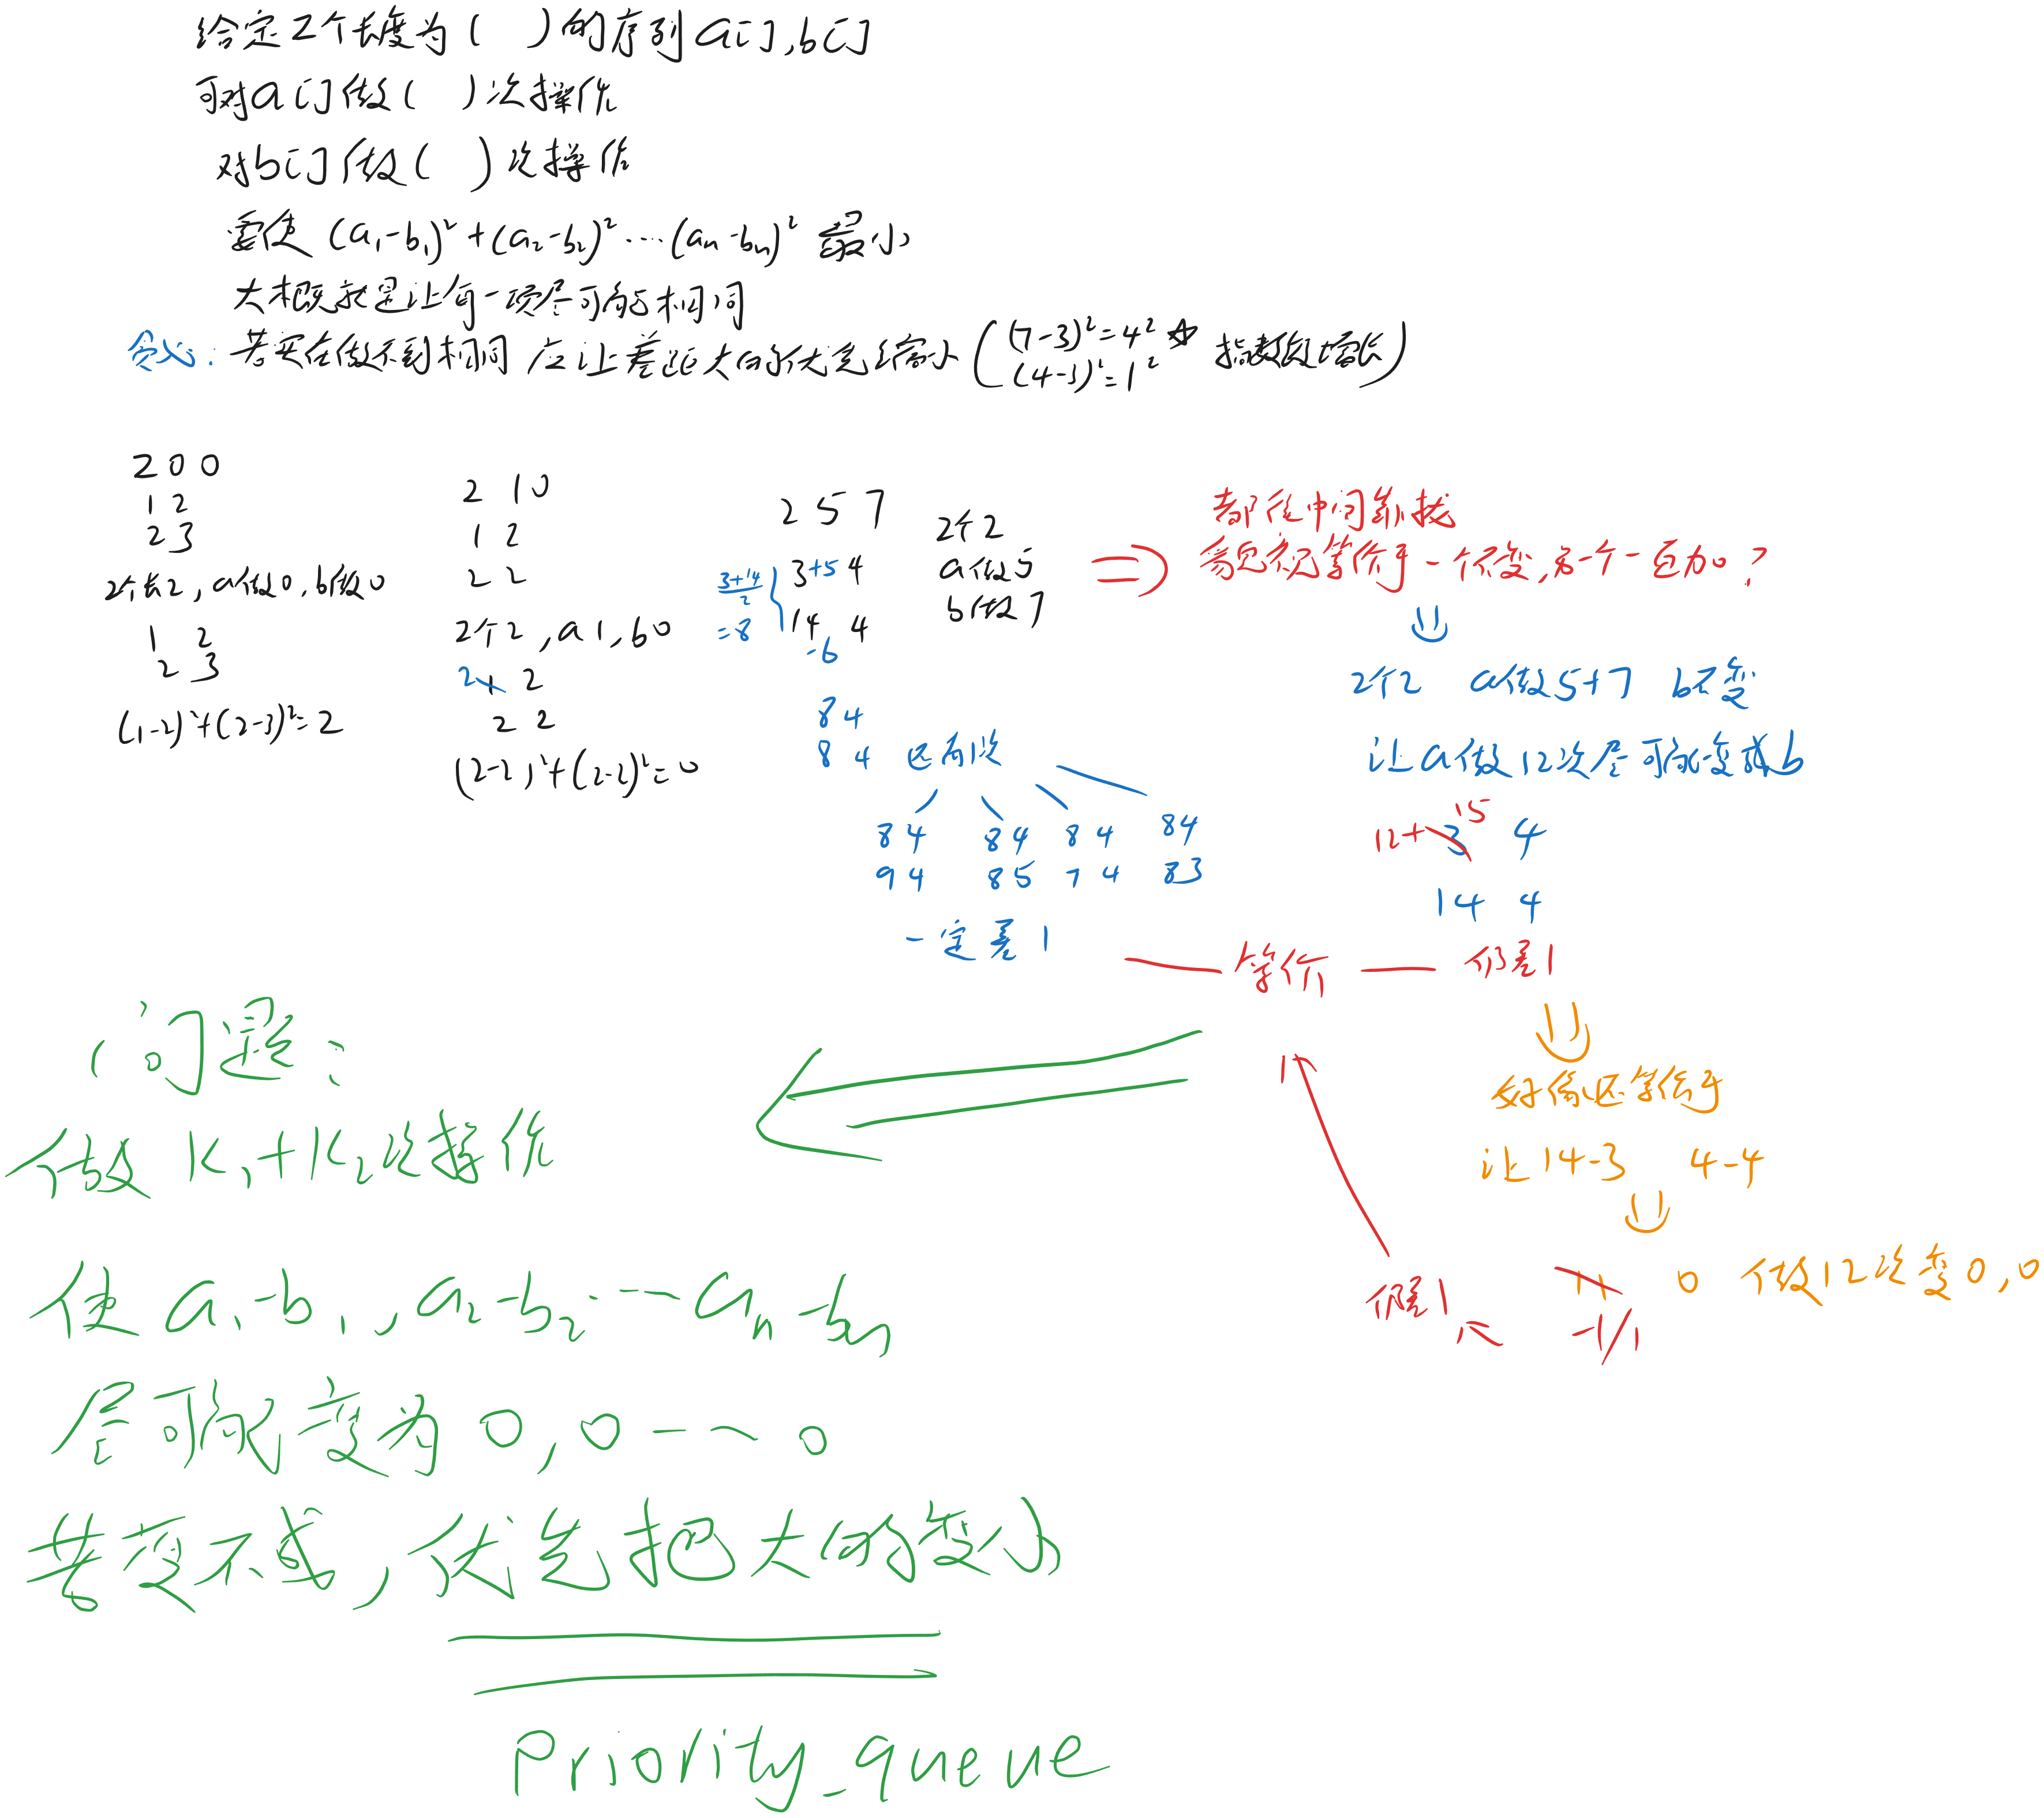 给定2个长度为( )的序列a[],b[]
可对a[]做( )次操作
对b[]做( )次操作
要使(a₁-b₁)²+(a₂-b₂)²…(aₙ-bₙ)²最小
大概就是让每一项尽可能相同
贪心:若实在做不到相同 应让差距大的优先缩小
(7-3)²=4²
(4-3)²=1²
指数级增长
2 0 0
1 2
2 3
2个数2,a做0,b做0
1 2
2 3
(1-2)²+(2-3)²=2
2 1 0
1 2
2 2
2个2,a1,b0
2 1 2
2 2
(2-2)²+(2-2)²=0
2 5 7
3+5 4
14 4
-6
3+14
2
=8
2个2
a做5
b做7
8 4
8 4 已用11次
8 4 8 4 8 4 8 4
9 4 8 5 7 4 8 3
一定差1
都往中间靠拢
考虑是否等价于一个不变,另一个一直加?
2个2 a做5+7 b不变
让a做12次尽可能变成b
12+3 15 4
14 4
等价 仅差1
好像还等价于
让14-3 4-4
11 0 做12次变0,0
-1/1
仅差1
问题:
做K₁+K₂次操作
使a₁-b₁,a₂-b₂…aₙ-bₙ
尽可能变为0,0…0
若变不成,优先把大的变小
Priority_queue